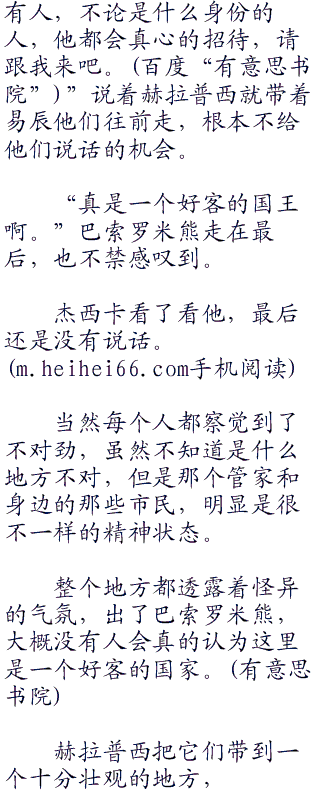 有人，不论是什么身份的
人，他都会真心的招待，请
跟我来吧。(百度“有意思书
院”)”说着赫拉普西就带着
易辰他们往前走，根本不给
他们说话的机会。
“真是一个好客的国王
啊。”巴索罗米熊走在最
后，也不禁感叹到。
杰西卡看了看他，最后
还是没有说话。
(m.heihei66.com手机阅读)
当然每个人都察觉到了
不对劲，虽然不知道是什么
地方不对，但是那个管家和
身边的那些市民，明显是很
不一样的精神状态。
整个地方都透露着怪异
的气氛，出了巴索罗米熊，
大概没有人会真的认为这里
是一个好客的国家。(有意思
书院)
赫拉普西把它们带到一
个十分壮观的地方，